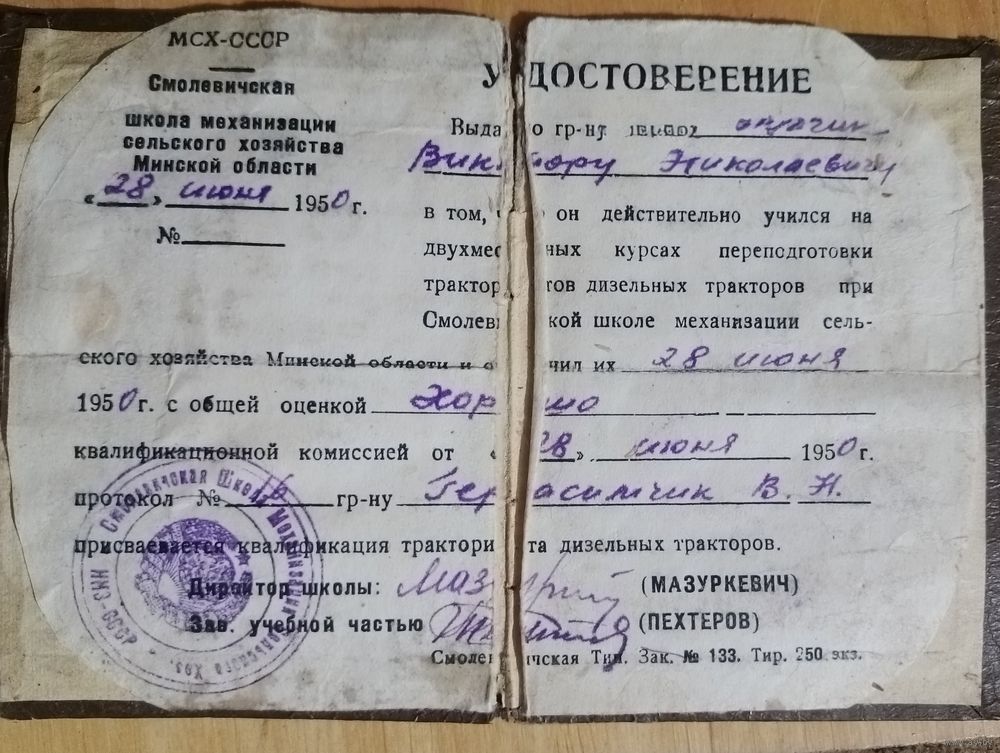 МСХ-СССР
Смолевичская
школа механизации
сельского хозяйства
Минской области
«28» июня 1950 г.
№
УДОСТОВЕРЕНИЕ
Выда о гр-ну
Виктору Николаевичу
в том, о он действительно учился на
двухмес ных курсах переподготовки
трактор тов дизельных тракторов при
Смолеви кой школе механизации сель-
ского хозяйства Минской области и о чил их 28 июня
1950 г. с общей оценкой Хорошо
квалификационной комиссией от «28» июня 1950 г.
протокол № 16 гр-ну Герасимчик В. Н.
присваевается квалификация тракториста дизельных тракторов.
Директор школы: (МАЗУРКЕВИЧ)
Зав. учебной частью (ПЕХТЕРОВ)
Смолевичская Тип. Зак. № 133. Тир. 250 экз.
МСХ-СССР Смолевичская Школа Механизации Сельского Хоз.